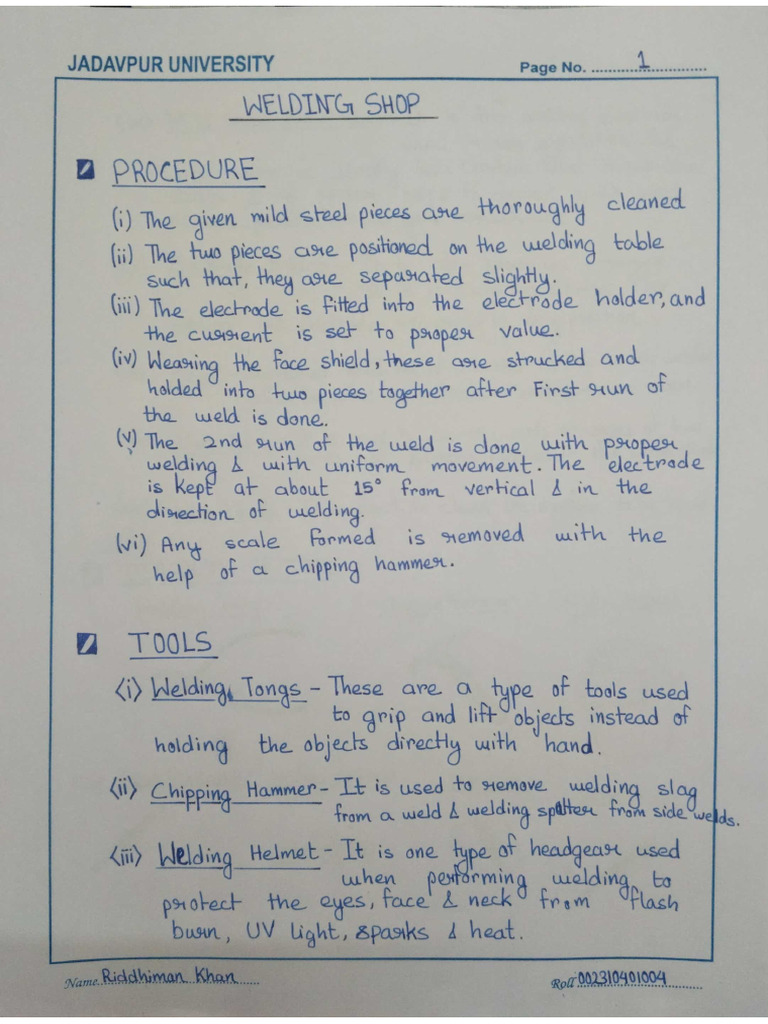 JADAVPUR UNIVERSITY Page No. 1
WELDING SHOP
PROCEDURE
(i) The given mild steel pieces are thoroughly cleaned
(ii) The two pieces are positioned on the welding table
such that, they are separated slightly.
(iii) The electrode is fitted into the electrode holder, and
the current is set to proper value.
(iv) Wearing the face shield, these are strucked and
holded into two pieces together after First run of
the weld is done.
(v) The 2nd run of the weld is done with proper
welding & with uniform movement. The electrode
is kept at about 15° from vertical & in the
direction of welding.
(vi) Any scale formed is removed with the
help of a chipping hammer.
TOOLS
<i> Welding Tongs - These are a type of tools used
to grip and lift objects instead of
holding the objects directly with hand.
<ii> Chipping Hammer - It is used to remove welding slag
from a weld & welding spatter from side welds.
<iii> Welding Helmet - It is one type of headgear used
when performing welding to
protect the eyes, face & neck from flash
burn, UV light, sparks & heat.
Name Riddhiman Khan Roll 002310401004